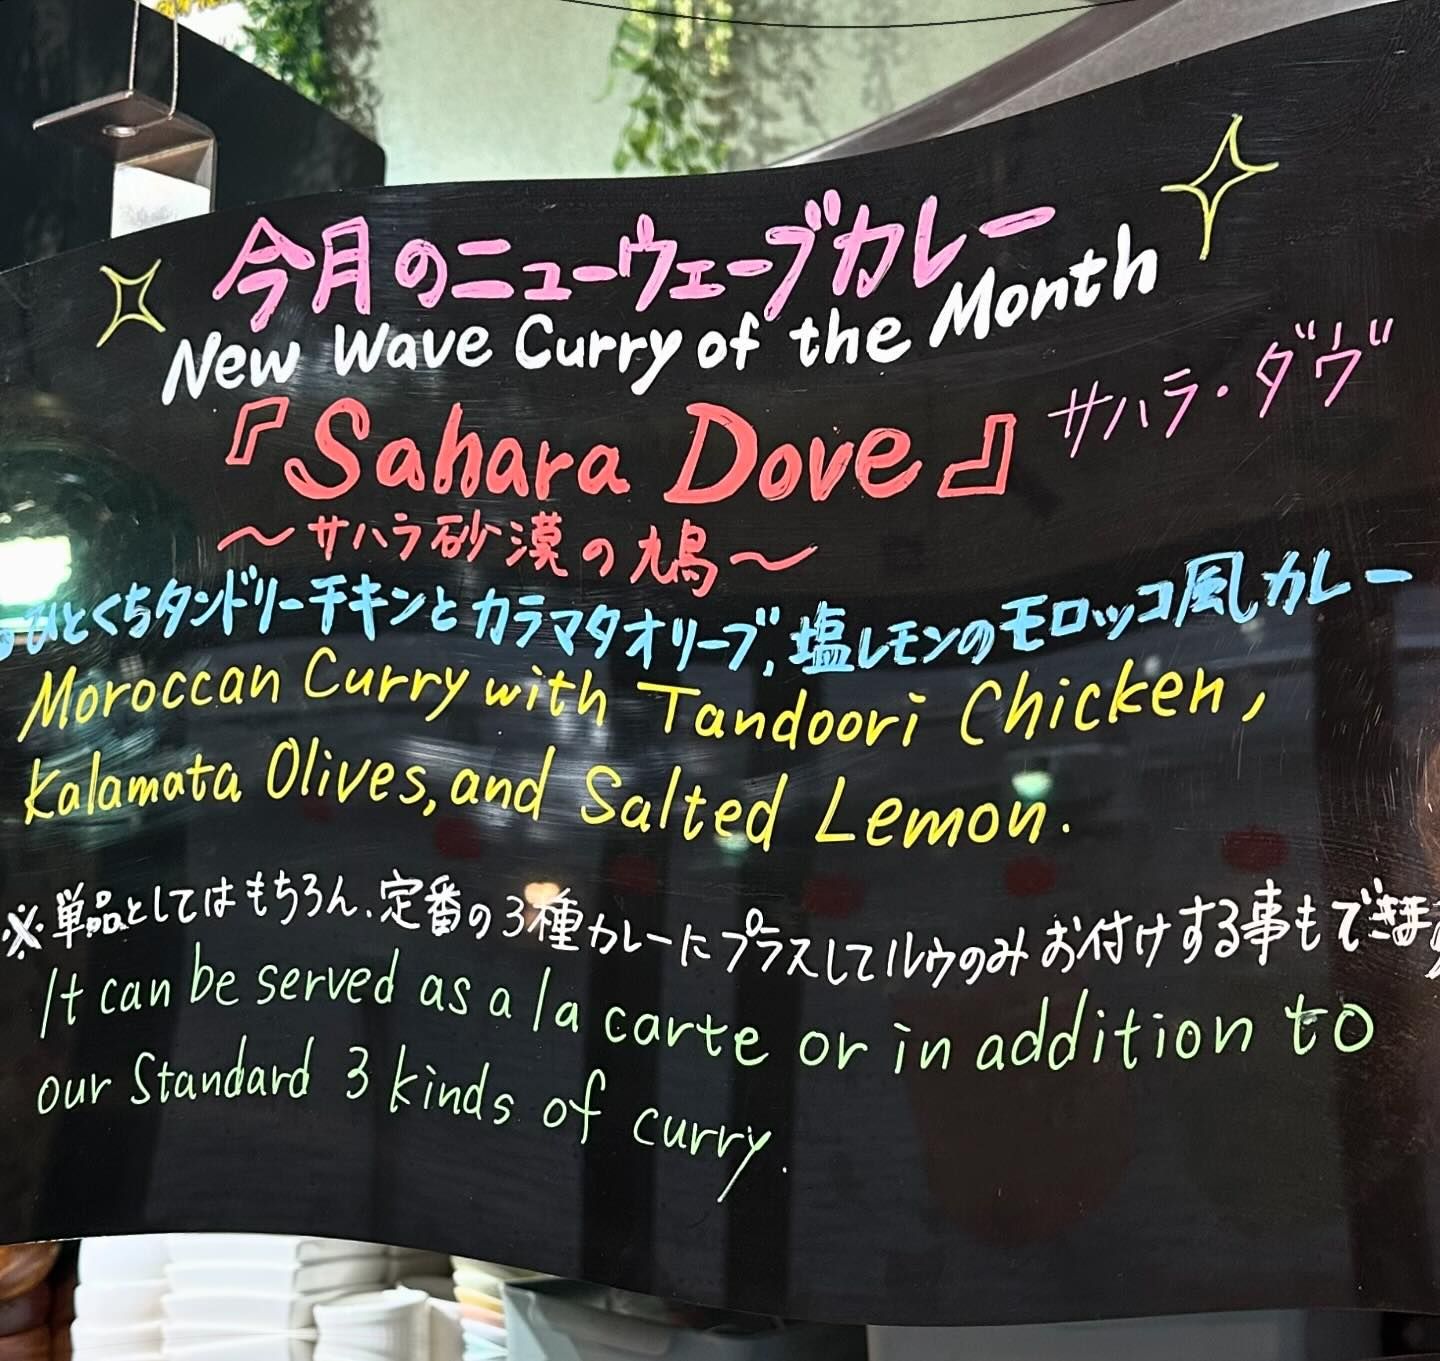 今月のニューウェーブカレー
New Wave Curry of the Month
『Sahara Dove』 サハラ・ダヴ
～サハラ砂漠の鳩～
ひとくちタンドリーチキンとカラマタオリーブ,塩レモンのモロッコ風カレー
Moroccan Curry with Tandoori Chicken,
Kalamata Olives, and Salted Lemon.
※単品としてはもちろん、定番の3種カレーにプラスしてルウのみお付けする事もできます
It can be served as a la carte or in addition to
our Standard 3 kinds of curry.